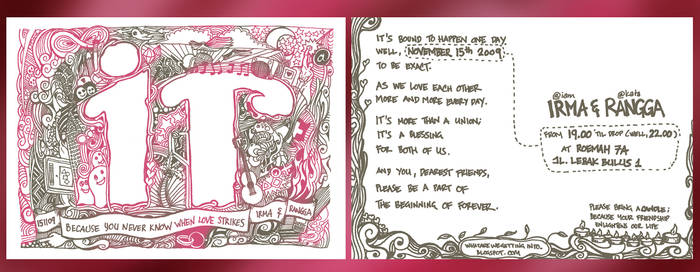 iT
@
151109
BECAUSE YOU NEVER KNOW WHEN LOVE STRIKES
IRMA & RANGGA
IT'S BOUND TO HAPPEN ONE DAY
WELL, NOVEMBER 15th 2009
TO BE EXACT.
AS WE LOVE EACH OTHER
MORE AND MORE EVERY DAY.
IT'S MORE THAN A UNION;
IT'S A BLESSING
FOR BOTH OF US.
AND YOU, DEAREST FRIENDS,
PLEASE BE A PART OF
THE BEGINNING OF FOREVER.
IRMA & RANGGA
FROM 19.00 'TIL DROP (WELL, 22.00)
AT ROEMAH 7A
JL. LEBAK BULUS 1
PLEASE BRING A CANDLE;
BECAUSE YOUR FRIENDSHIP
ENLIGHTENS OUR LIFE
WHATAREWEGETTING INTO.
BLOGSPOT.COM